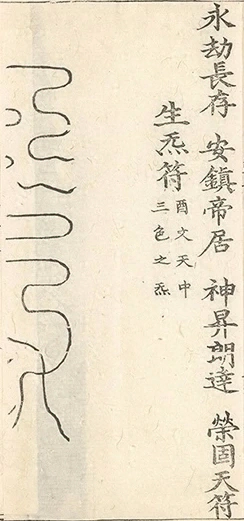 永劫長存 安鎮帝居 神昇朗達 榮固天符
生炁符 酉文天中
三色之炁